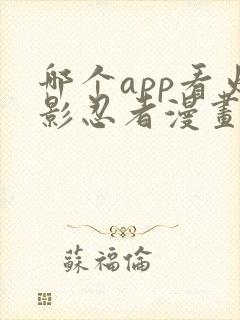 哪个app看火
影忍者漫畫
蘇福倫